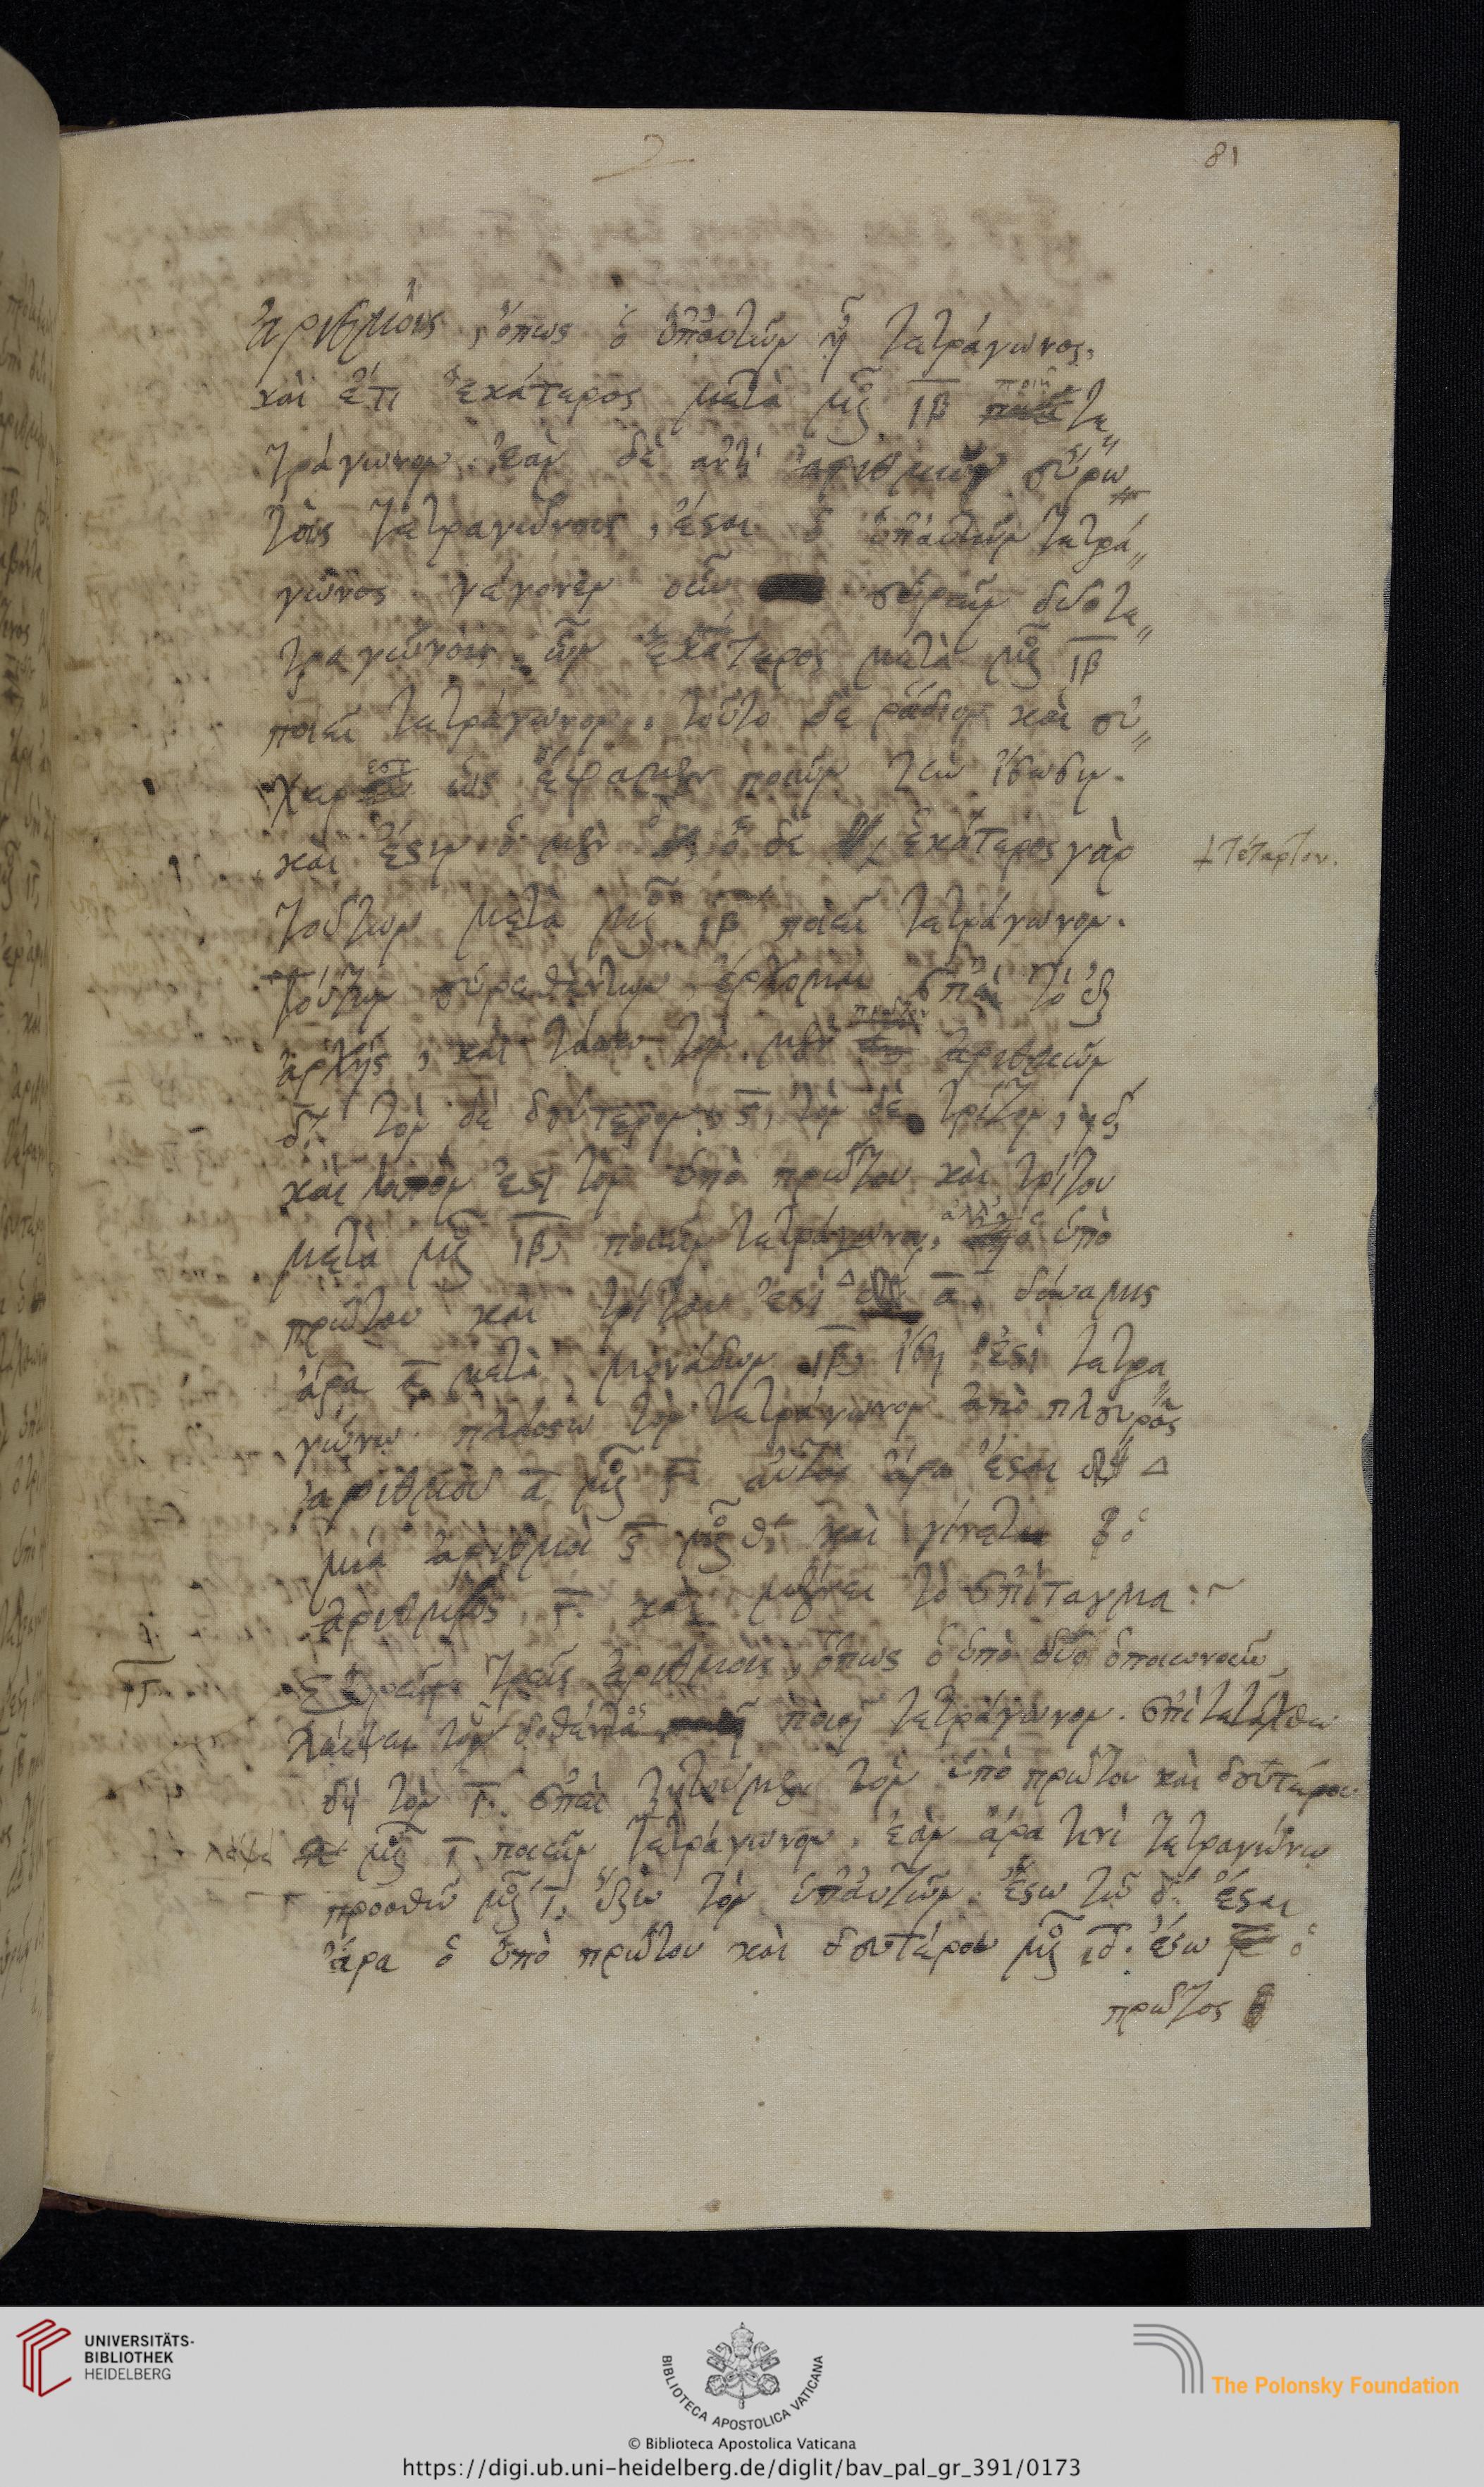 81
ἀριθμοὺς, ὅπως ὁ ὑπ' αὐτῶν ᾖ τετράγωνος,
καὶ ἔτι ἑκάτερος μετὰ μο ιβ ποιῇ τε
τράγωνον. ἐὰν δὲ ἀντὶ ἀριθμῶν εὕρω
τοὺς τετραγώνους, ἔσται ὁ ὑπ' αὐτῶν τετρά
γωνος γέγονεν οὖν εὑρεῖν δύο τε
τραγώνους, ὧν ἑκάτερος μετὰ μο ιβ
ποιεῖ τετράγωνον, τοῦτο δὲ ῥᾴδιον καὶ
ὡς ἔφαμεν ποιεῖν τὴν ἴσωσιν.
καὶ ἔστιν ὁ μὲν δ, ὁ δὲ ἑκάτερος γὰρ
τέταρτον.
τούτων μετὰ μο ιβ ποιεῖ τετράγωνον.
τούτων εὑρεθέντων, ἔρχομαι ἐπὶ τὸ ἐξ
ἀρχῆς, καὶ τάσσω τὸν μὲν πρῶτον ἀριθμῶν
δ. τὸν δὲ δεύτερον, ς, τὸν δὲ τρίτον,
καὶ λοιπόν ἐστι τὸν ὑπὸ πρώτου καὶ τρίτου
μετὰ μο ιβ, ποιεῖν τετράγωνον, ἀλλ' ὁ ὑπὸ
πρώτου καὶ τρίτου ἐστὶ Δ α, δύναμις
ἄρα α μετὰ μονάδων ιβ, ἴση ἐστὶ τετρα
γώνῳ. πλάσσω τὸν τετράγωνον ἀπὸ πλευρᾶς
ἀριθμοῦ α μο γ. αὐτὸς ἄρα ἔσται Δ
μία ἀριθμοὶ ς μο θ, καὶ γίνεται ὁ
ἀριθμὸς, καὶ μένει τὸ ἐπίταγμα
ις
Εὑρεῖν τρεῖς ἀριθμοὺς, ὅπως ὁ ὑπὸ δύο ὁποιωνοῦν
λείψει τοῦ δοθέντος ποιῇ τετράγωνον. ἐπιτετάχθω
δὴ τὸν ι. ἐπεὶ ζητοῦμεν τὸν ὑπὸ πρώτου καὶ δευτέρου
λείψει μο ι ποιεῖν τετράγωνον, ἐὰν ἄρα τινὶ τετραγώνῳ
προσθῶ μο ι, ἕξω τὸν ὑπ' αὐτῶν. ἔστω τῷ δ. ἔσται
ἄρα ὁ ὑπὸ πρώτου καὶ δευτέρου μο ιδ. ἔστω ὁ
πρῶτος
UNIVERSITÄTS-
BIBLIOTHEK
HEIDELBERG
BIBLIOTECA APOSTOLICA VATICANA
The Polonsky Foundation
© Biblioteca Apostolica Vaticana
https://digi.ub.uni-heidelberg.de/diglit/bav_pal_gr_391/0173